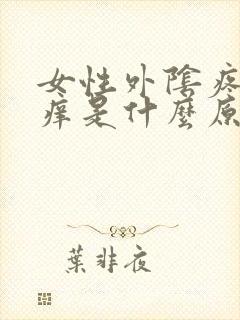 女性外陰疼
痒是什麼原
葉非夜